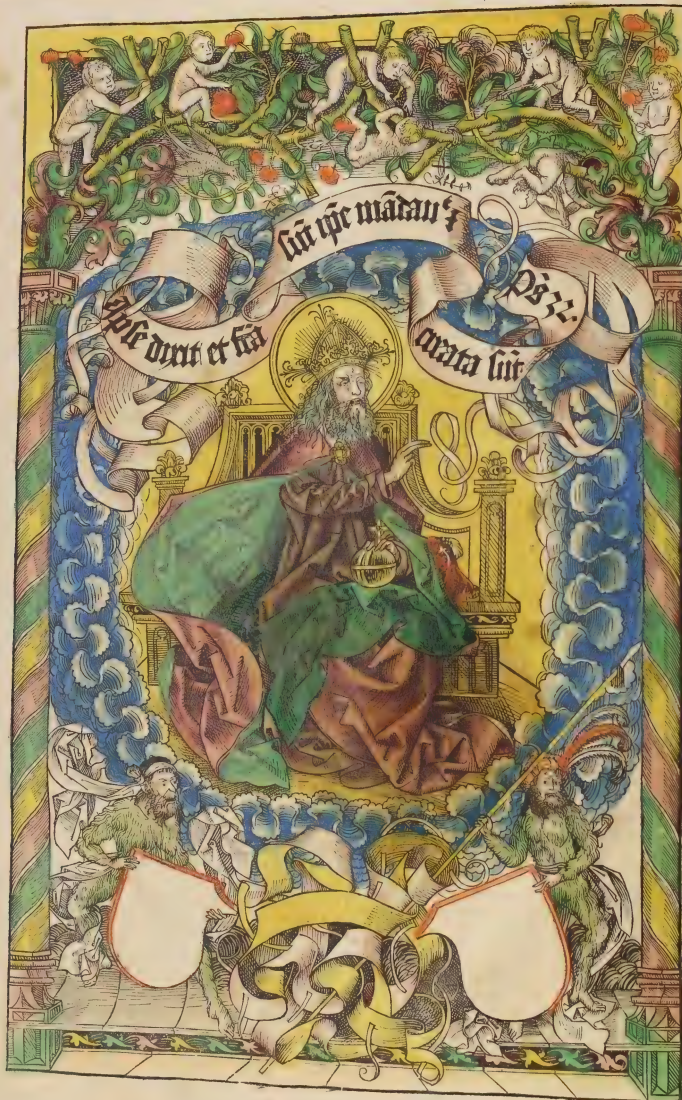 Ipse dixit et fcā
sūt ip̄e mādau't
creata sūt.
Ps 32.